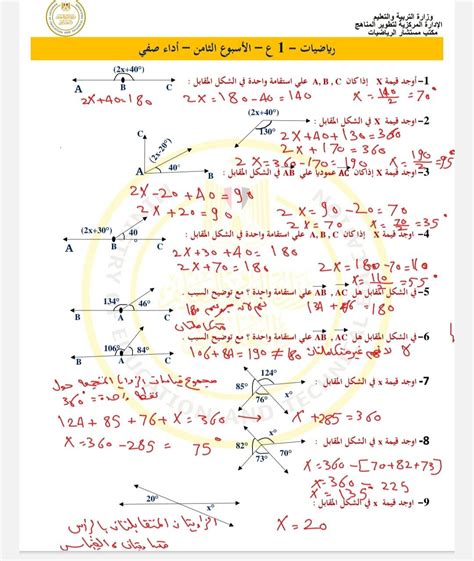 وزارة التربية والتعليم
الإدارة المركزية لتطوير المناهج
مكتب مستشار الرياضيات
رياضيات – 1 ع – الأسبوع الثامن – أداء صفي
1- أوجد قيمة X إذا كان A, B, C علي استقامة واحدة في الشكل المقابل :
(2x+40°)
A B C
2X+40=180
2X=180-40=140
X=140/2=70°
2- أوجد قيمة x في الشكل المقابل :
(2x+40°)
130°
2X+40+130=360
2X+170=360
2X=360-170=190
X=190/2=95°
3- أوجد قيمة X إذا كان AC عمودياً علي AB في الشكل المقابل :
C
(2x-20°)
40°
A B
2X-20+40=90
2X+20=90
2X=90-20=70
X=70/2=35°
4- أوجد قيمة X إذا كان A, B, C علي استقامة واحدة في الشكل المقابل :
(2x+30°)
40
A B C
2X+30+40=180
2X+70=180
2X=180-70=110
X=110/2=55°
5- في الشكل المقابل هل AB , AC علي استقامة واحدة ؟ مع توضيح السبب .
134° 46°
B A C
نعم لأنه 134+46=180
متكاملتان
6- في الشكل المقابل هل AB , AC علي استقامة واحدة ؟ مع توضيح السبب :
106° 84°
B A C
لا لأنهم غير متكاملتان 106+84=190≠180
7- أوجد قيمة x في الشكل المقابل :
124°
85° x°
76°
مجموع قياسات الزوايا المتجمعة حول
نقطة واحدة = 360°
124+85+76+X=360
X+285=360
X=360-285=75°
8- أوجد قيمة x في الشكل المقابل :
x°
82° 70°
73°
X=360-[70+82+73]
X=360-225
X=135°
9- أوجد قيمة x في الشكل المقابل :
20° x°
الزاويتان المتقابلتان بالرأس
متساويتان في القياس
X=20